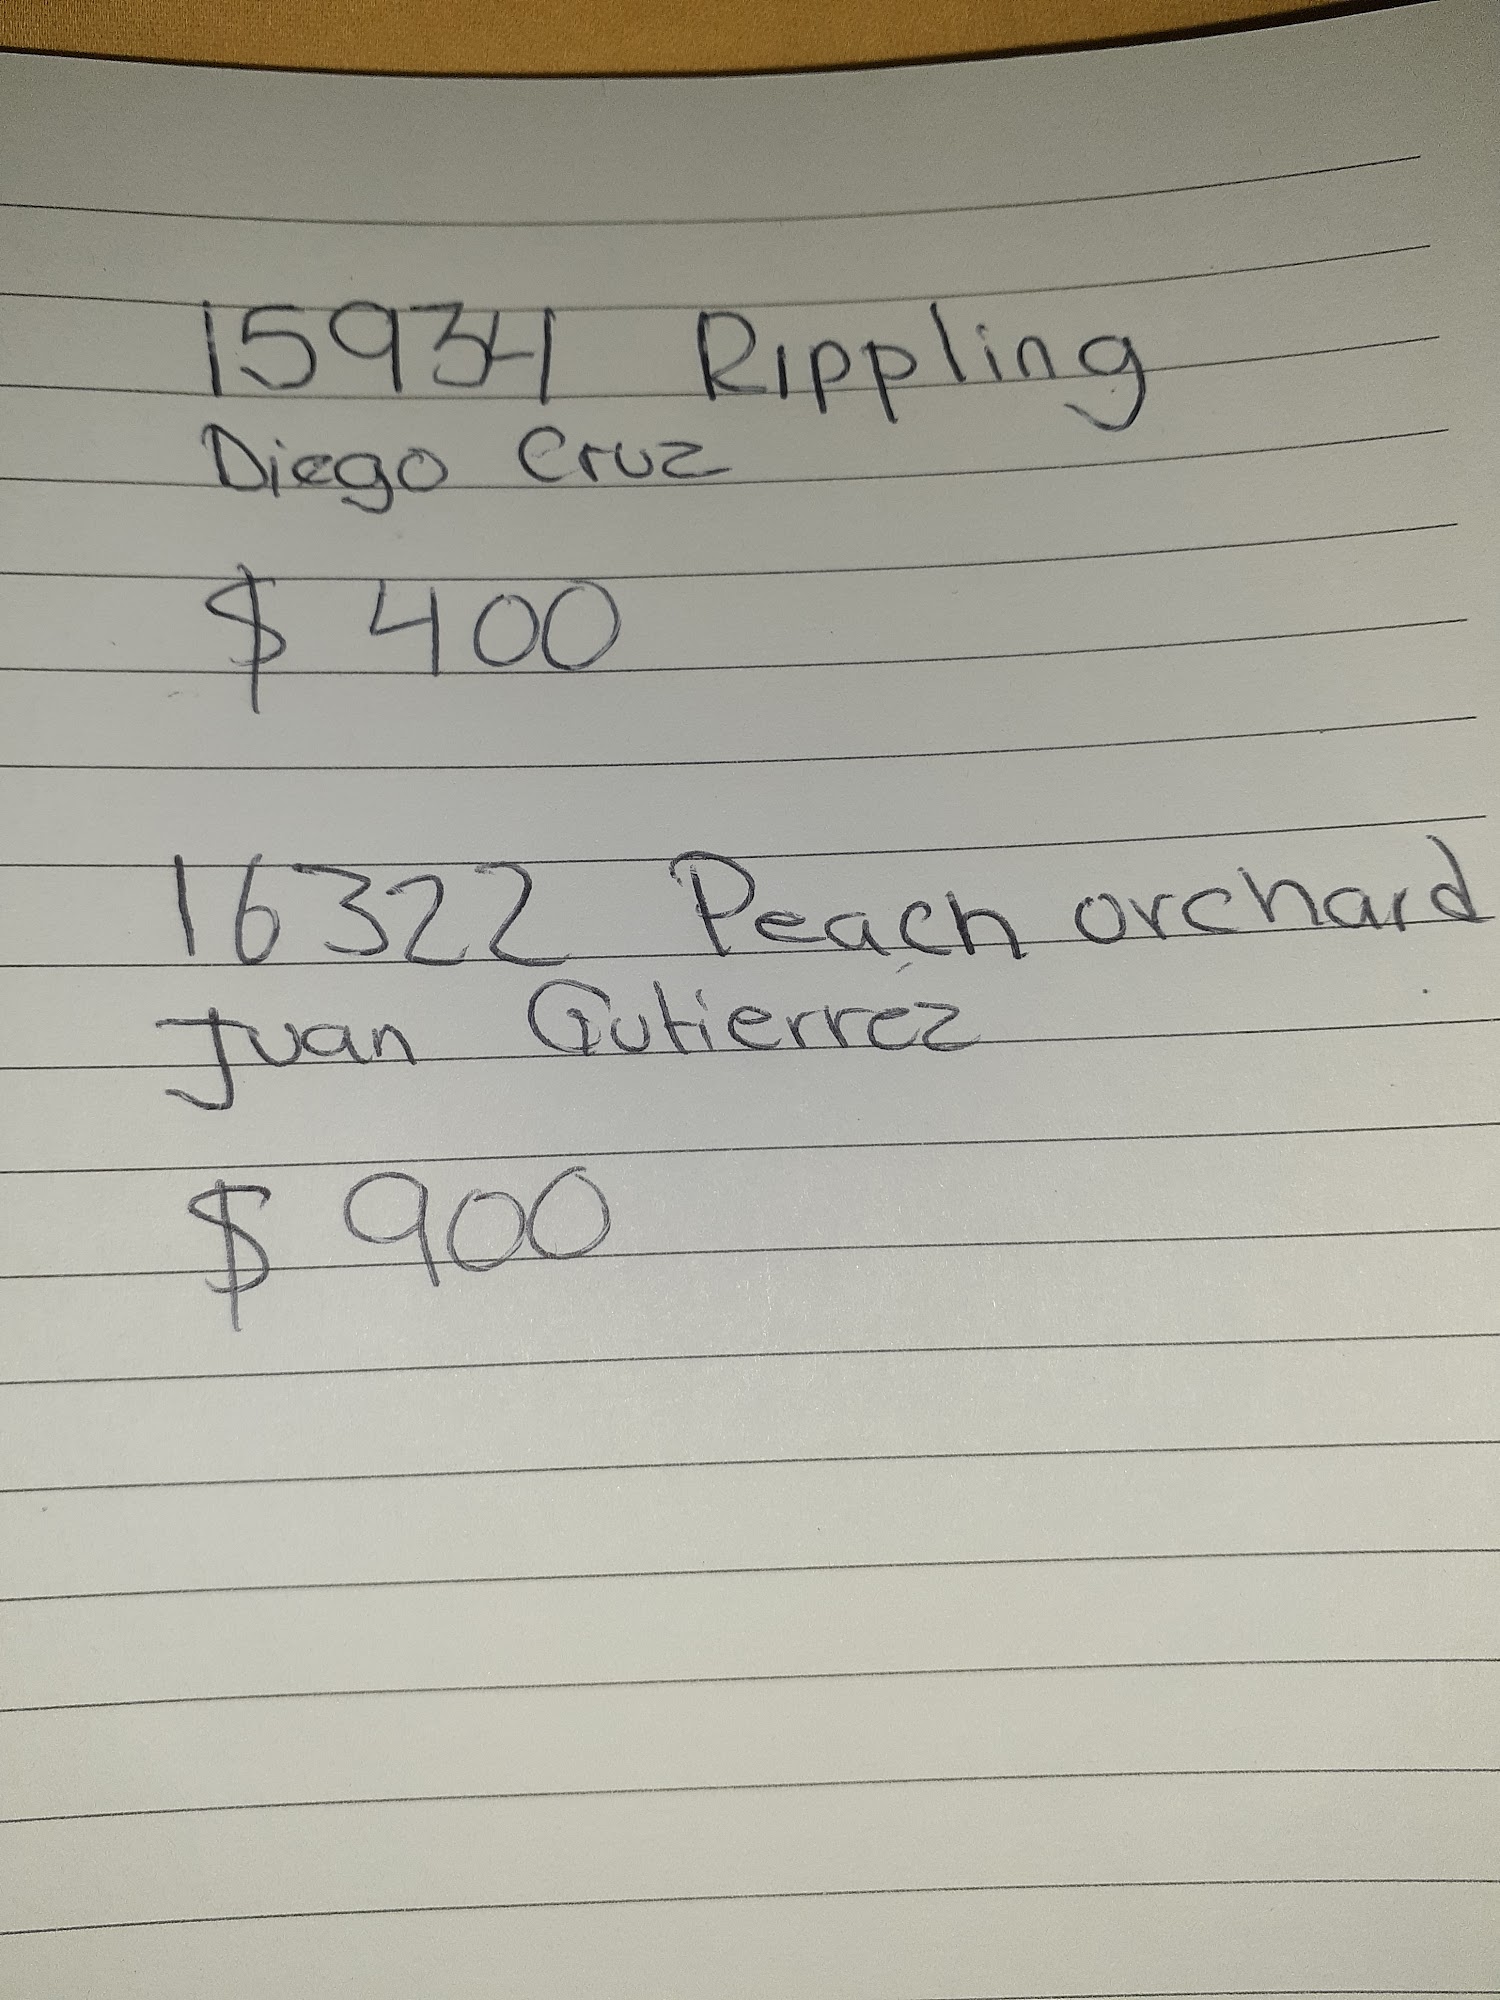 15934 Rippling
Diego Cruz
$ 400
16322 Peach orchard
Juan Gutierrez
$ 900